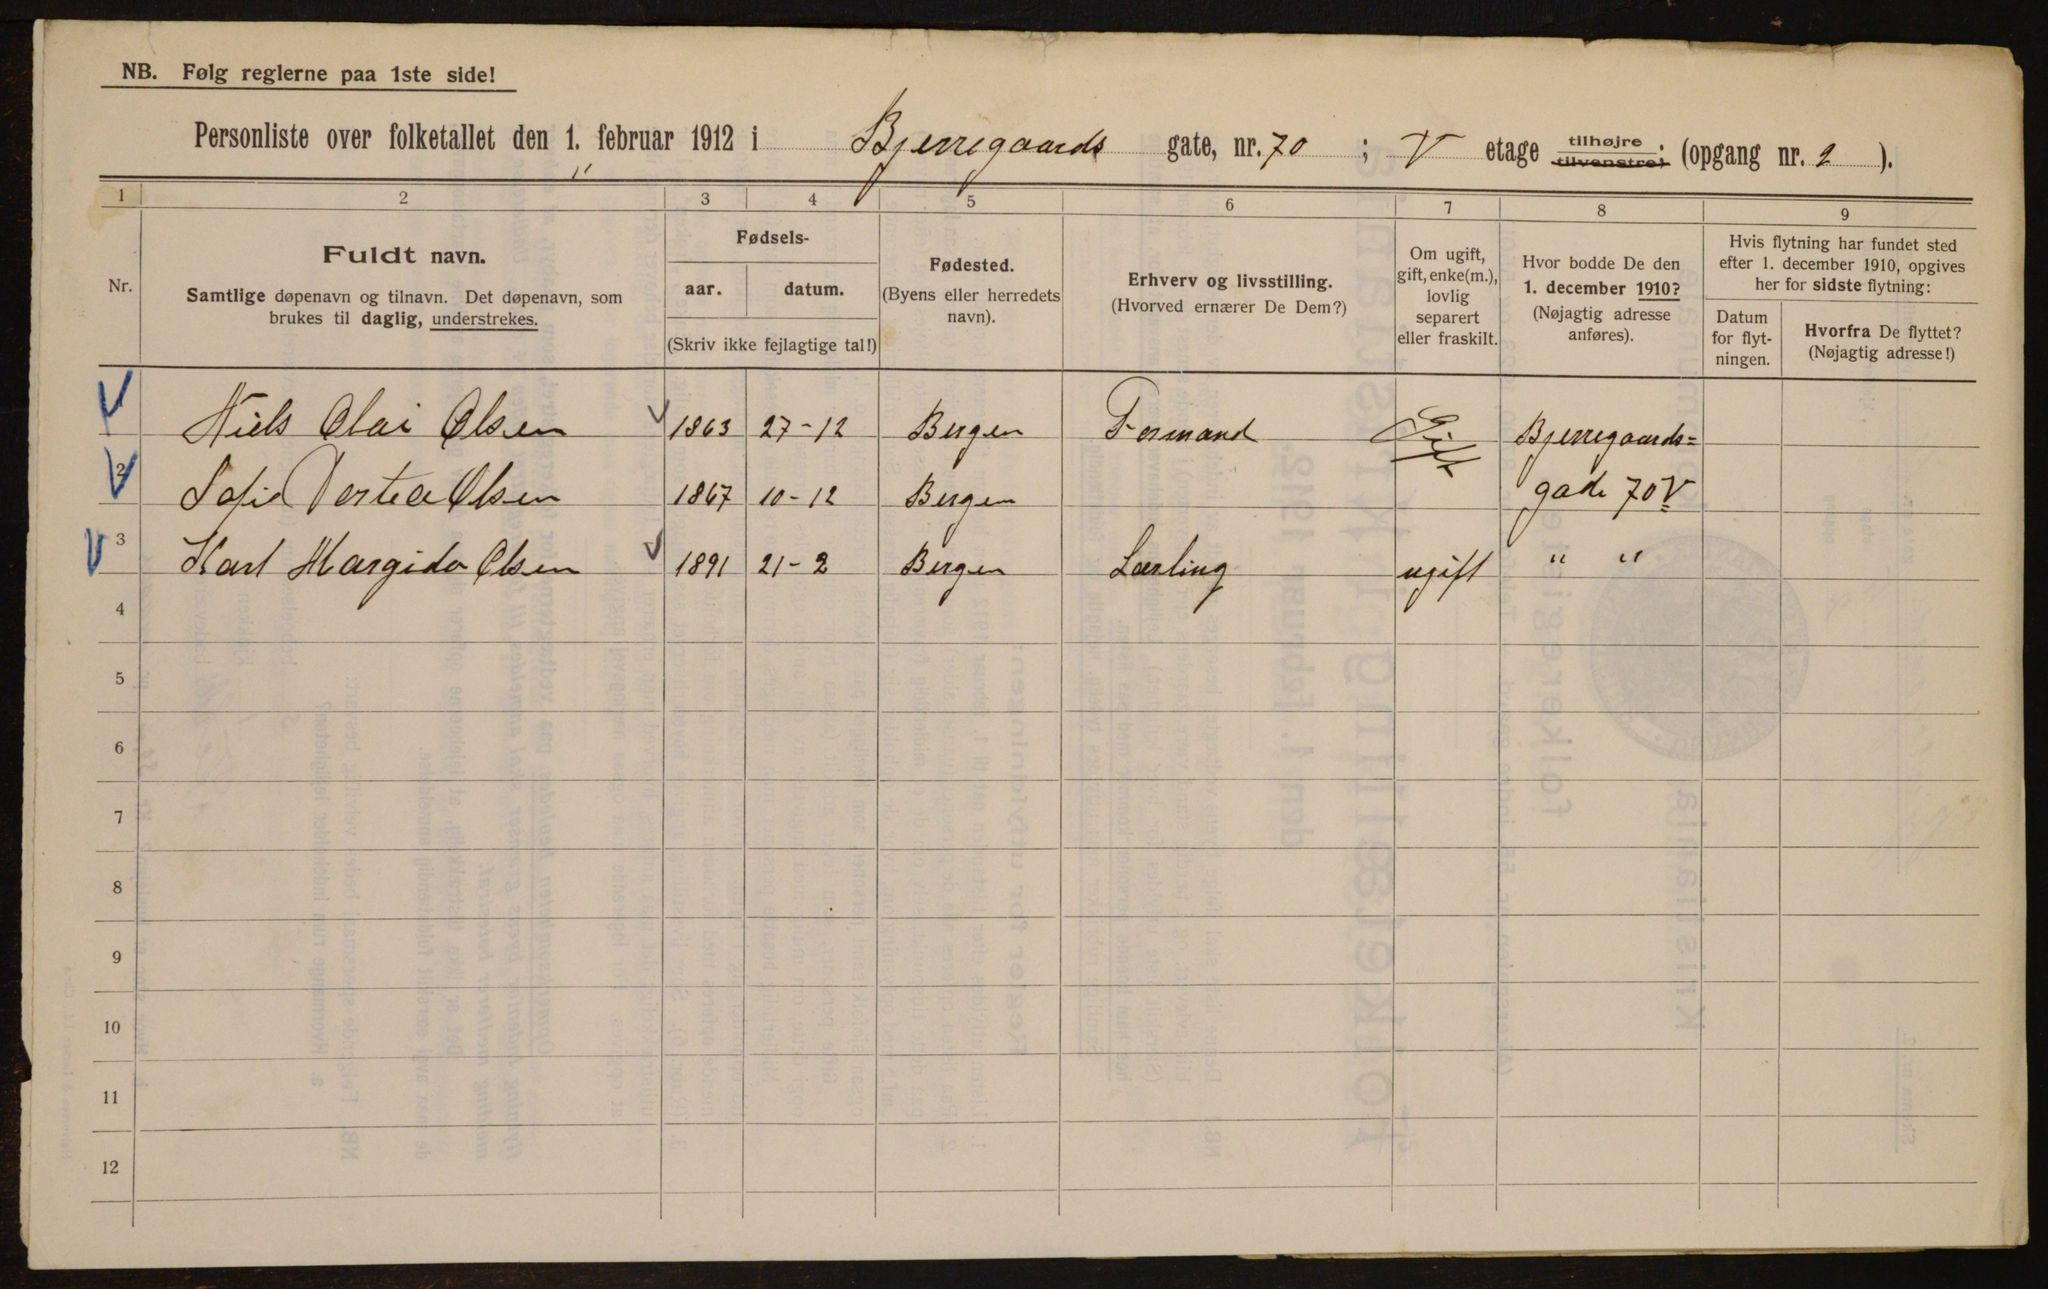 NB. Følg reglerne paa 1ste side!
Personliste over folketallet den 1. februar 1912 i Bjerregaards gate, nr. 70 ; V etage tilhøjre tilvenstre; (opgang nr. 2 ).
1 2 3 4 5 6 7 8 9
Nr.
Fuldt navn.
Samtlige døpenavn og tilnavn. Det døpenavn, som
brukes til daglig, understrekes.
Fødsels-
aar. datum.
(Skriv ikke fejlagtige tal!)
Fødested.
(Byens eller herredets
navn).
Erhverv og livsstilling.
(Hvorved ernærer De Dem?)
Om ugift,
gift, enke(m.),
lovlig
separert
eller fraskilt.
Hvor bodde De den
1. december 1910?
(Nøjagtig adresse
anføres).
Hvis flytning har fundet sted
efter 1. december 1910, opgives
her for sidste flytning:
Datum
for flyt-
ningen.
Hvorfra De flyttet?
(Nøjagtig adresse!)
Niels Olai Olsen 1863 27-12 Bergen Formand Gift Bjerregaards=
2 Sofie Dortea Olsen 1867 10-12 Bergen gade 70 V
3 Karl Margido Olsen 1891 21-2 Bergen Lærling ugift " "
4
5
6
7
8
9
10
11
12